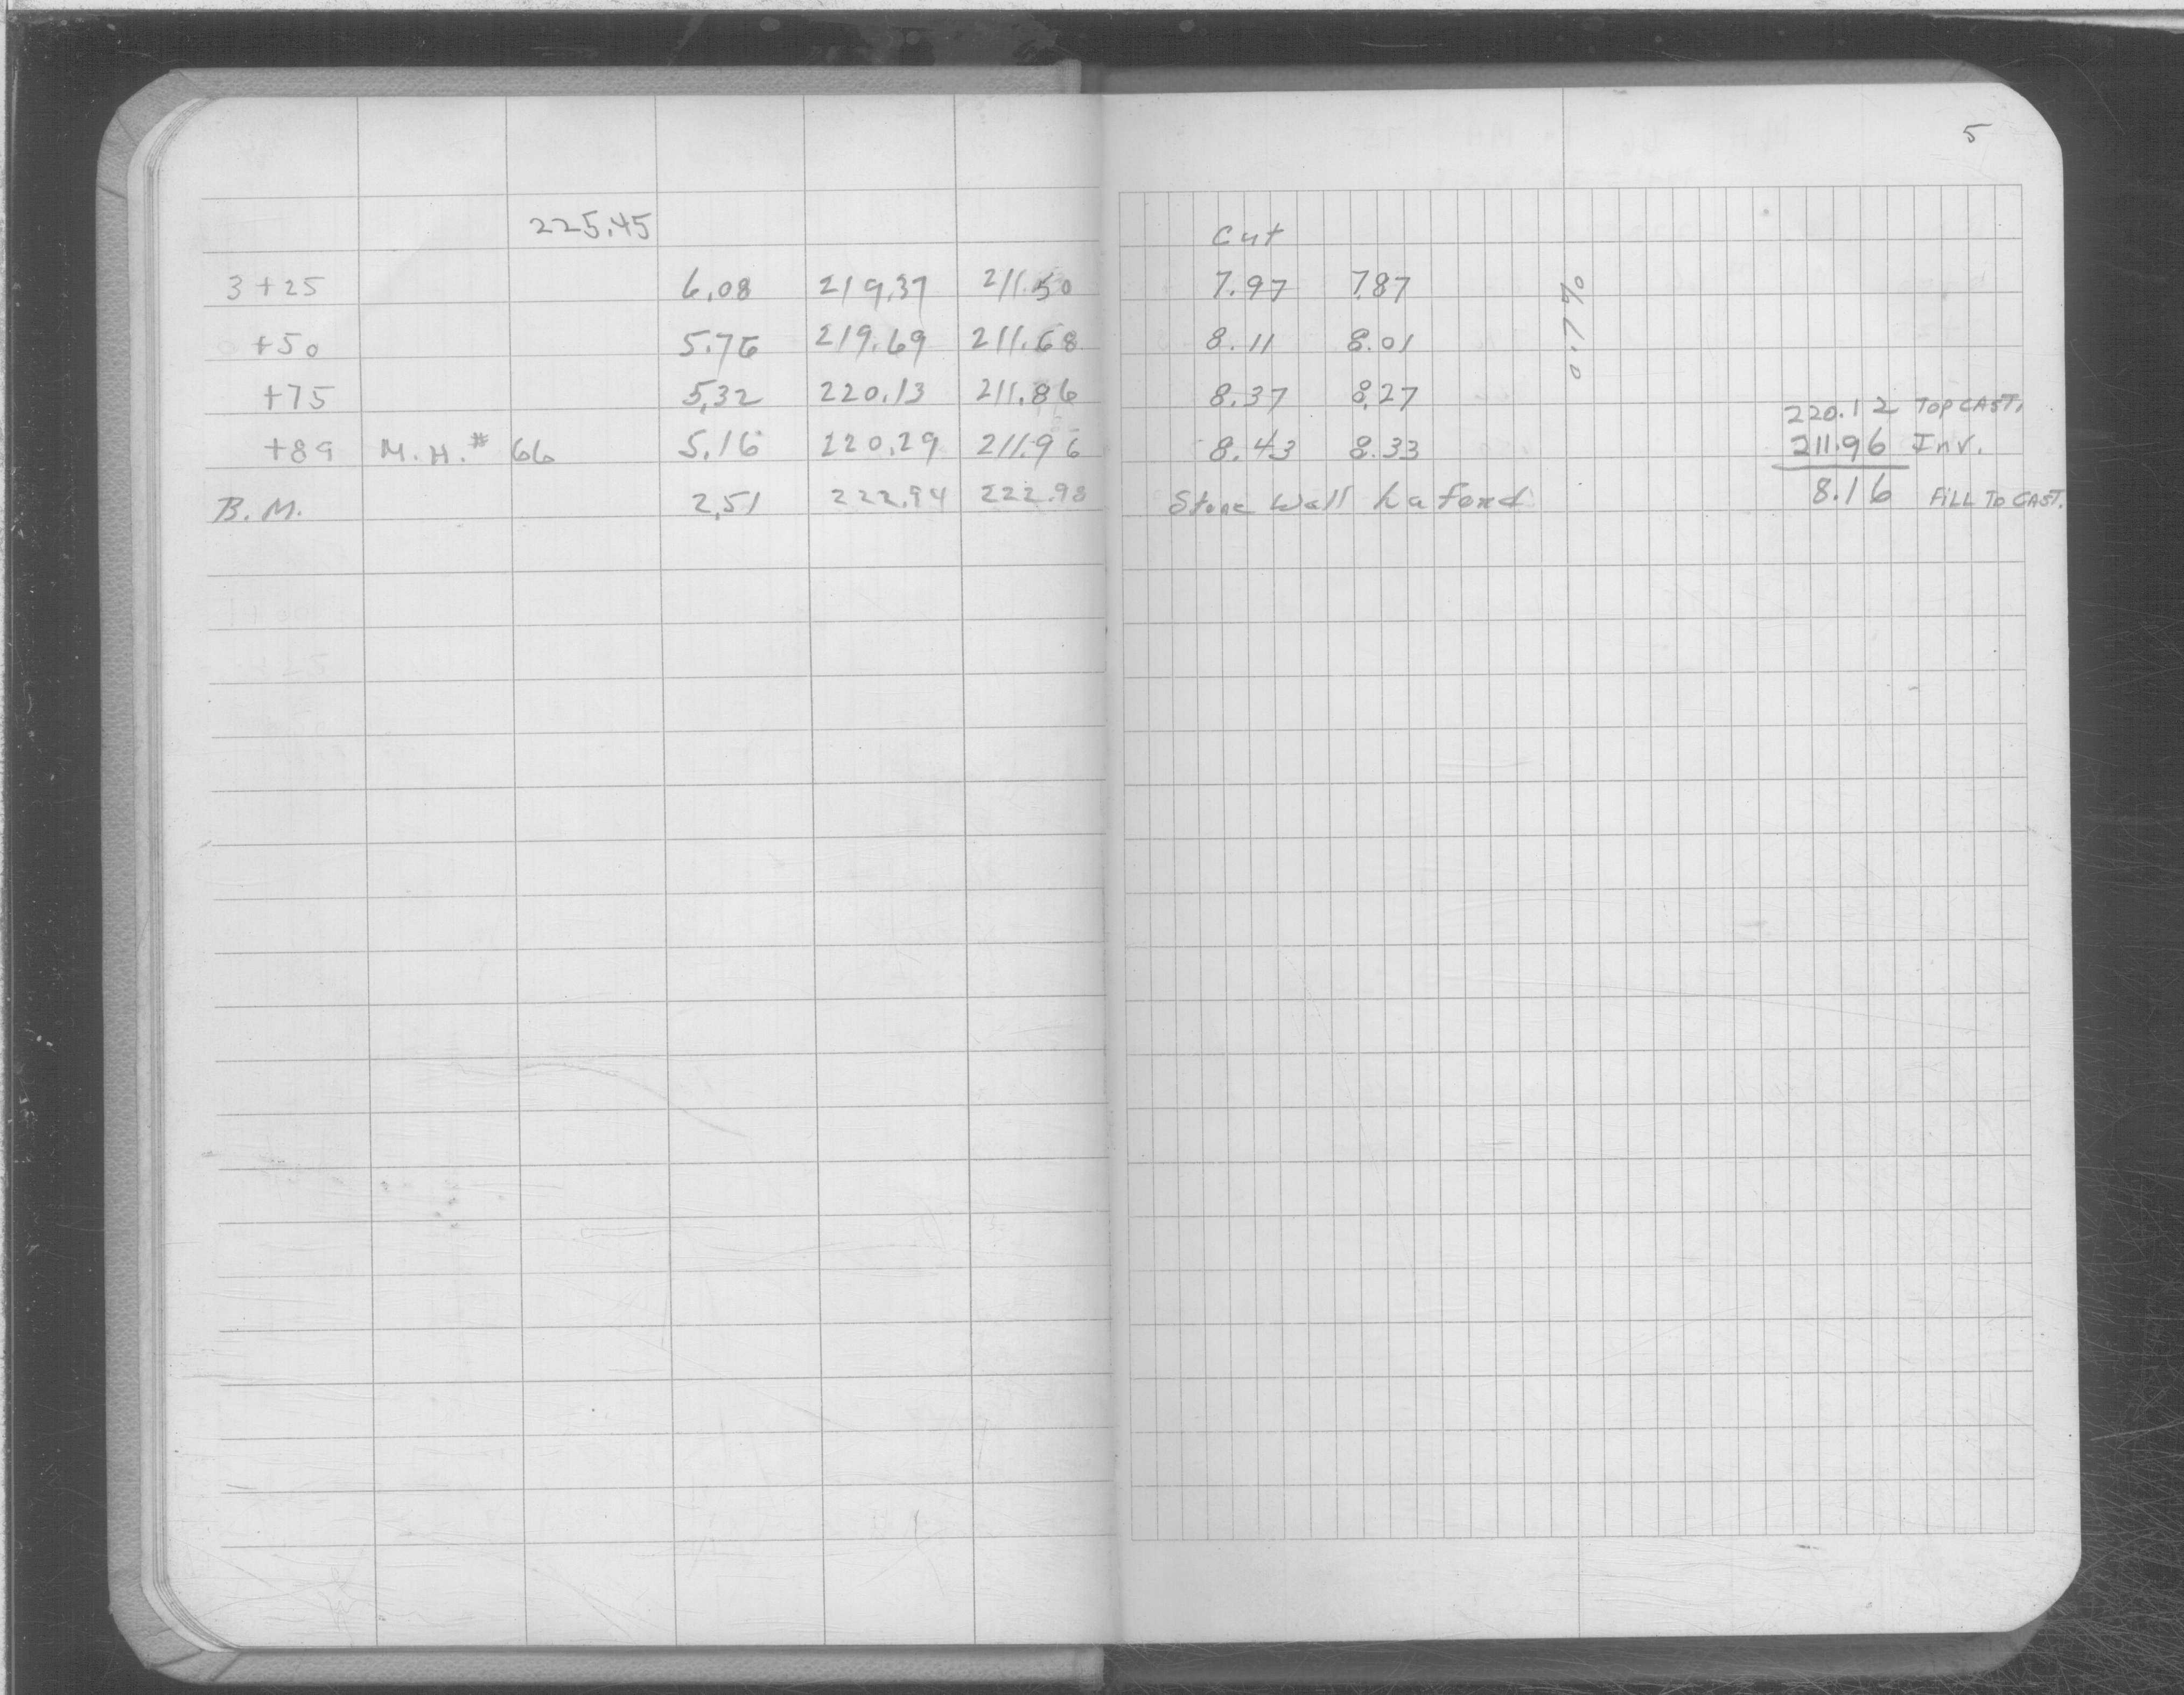 5
225.45 Cut
3+25 6.08 219.37 211.50 7.97 7.87
+50 5.76 219.69 211.68 8.11 8.01
0.7%
+75 5.32 220.13 211.86 8.37 8.27
220.12 TOP CAST.
+89 M.H.# 66 5.16 220.29 211.96 8.43 8.33 211.96 Inv.
8.16 FILL TO CAST.
B.M. 2.51 222.94 222.98 Stone Wall Lafond